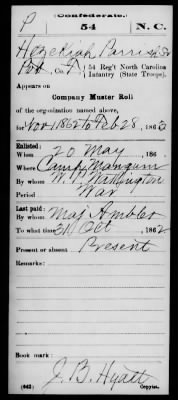 Confederate.
P 54 N.C.
Hezekiah Parrish
Pvt, Co. , 54 Reg't North Carolina
Infantry (State Troops).
Appears on
Company Muster Roll
of the organization named above,
for Nov 1 1862 to Feb 28, 1863
Enlisted:
When 20 May, 186
Where Camp Mangum
By whom W. P. Washington
Period War
Last paid:
By whom Maj. Ambler
To what time 31 Oct, 1862
Present or absent Present
Remarks:
Book mark:
J. B. Hyatt
(642) Copyist.